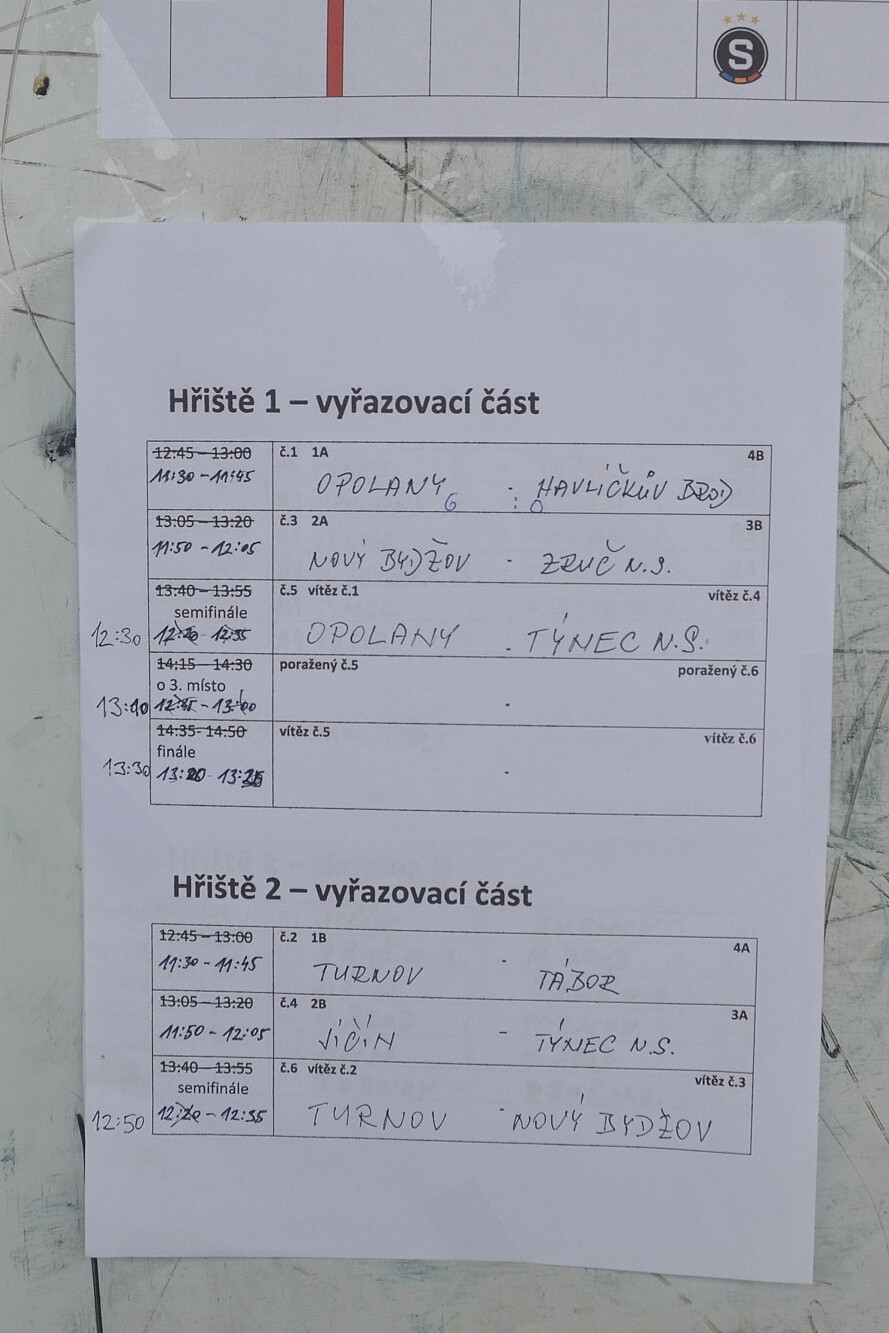 S
Hřiště 1 – vyřazovací část
12:45 – 13:00 č.1 1A 4B
11:30 - 11:45 OPOLANY - HAVLÍČKŮV BROD
6 : 0
13:05 – 13:20 č.3 2A 3B
11:50 - 12:05 NOVÝ BYDŽOV - ZRUČ N.S.
13:40 – 13:55 č.5 vítěz č.1 vítěz č.4
semifinále
12:30 12:20 - 12:35 OPOLANY - TÝNEC N.S.
14:15 – 14:30 poražený č.5 poražený č.6
o 3. místo
13:10 12:45 - 13:00 -
14:35- 14:50 vítěz č.5 vítěz č.6
finále
13:30 13:20 - 13:35 -
Hřiště 2 – vyřazovací část
12:45 – 13:00 č.2 1B 4A
11:30 - 11:45 TURNOV - TÁBOR
13:05 – 13:20 č.4 2B 3A
11:50 - 12:05 JIČÍN - TÝNEC N.S.
13:40 – 13:55 č.6 vítěz č.2 vítěz č.3
semifinále
12:50 12:20 - 12:35 TURNOV - NOVÝ BYDŽOV